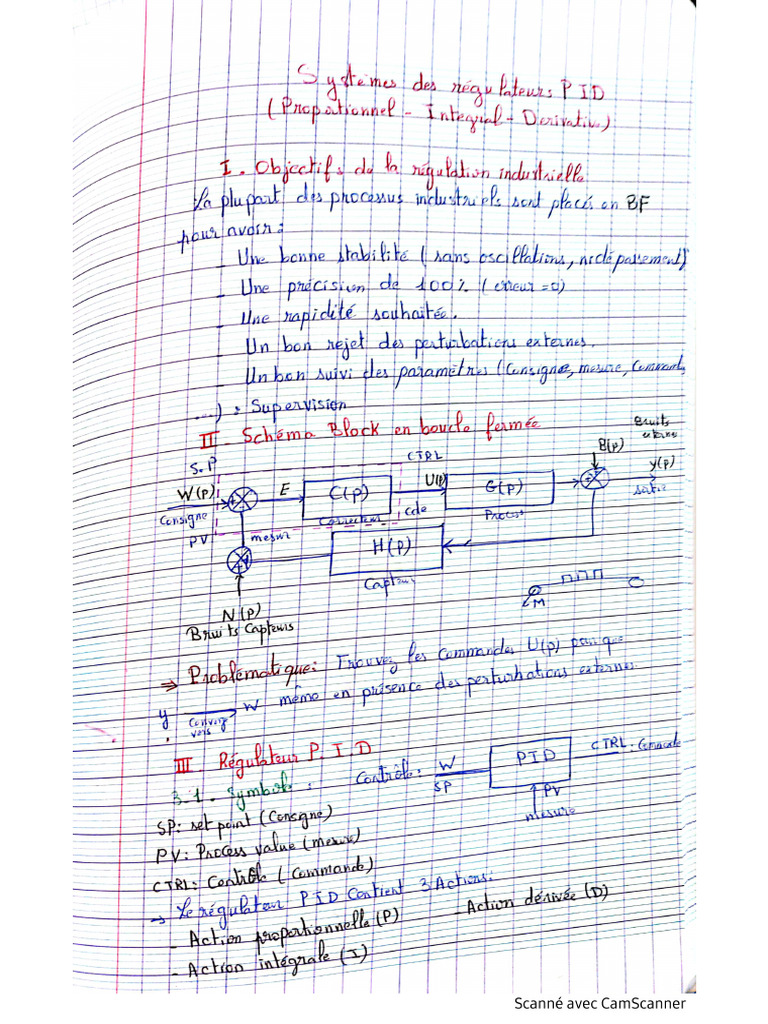 Systèmes des régulateurs PID
(Proportionnel - Integral - Derivative)
I. Objectifs de la régulation industrielle
La plupart des processus industriels sont placés en BF
pour avoir :
- Une bonne stabilité (sans oscillations, ni dépassement)
- Une précision de 100% (erreur = 0)
- Une rapidité souhaitée.
- Un bon rejet des perturbations externes.
- Un bon suivi des paramètres (Consigne, mesure, Command,
...) : Supervision
II - Schéma Block en boucle fermée
Bruits
externes
S.P
CTRL
B(p)
W(p)
E
C(p)
U(p)
G(p)
y(p)
Consigne
Correcteur
cde
Process
sortie
PV
mesur
H(p)
Capteur
M
N(p)
Bruits Capteurs
⇒ Problématique: Trouvez les Commandes U(p) pour que
y Converg vers W même en présence des perturbations externes.
III. Régulateur P.I.D
3.1. Symbole : Contrôle : W
SP
PID
CTRL: Commande
PV
mesure
SP: set point (Consigne)
PV: Process value (mesure)
CTRL: Contrôle (Commande)
→ Le régulateur PID Contient 3 Actions:
- Action proportionnelle (P) - Action dérivée (D)
- Action intégrale (I)
Scanné avec CamScanner